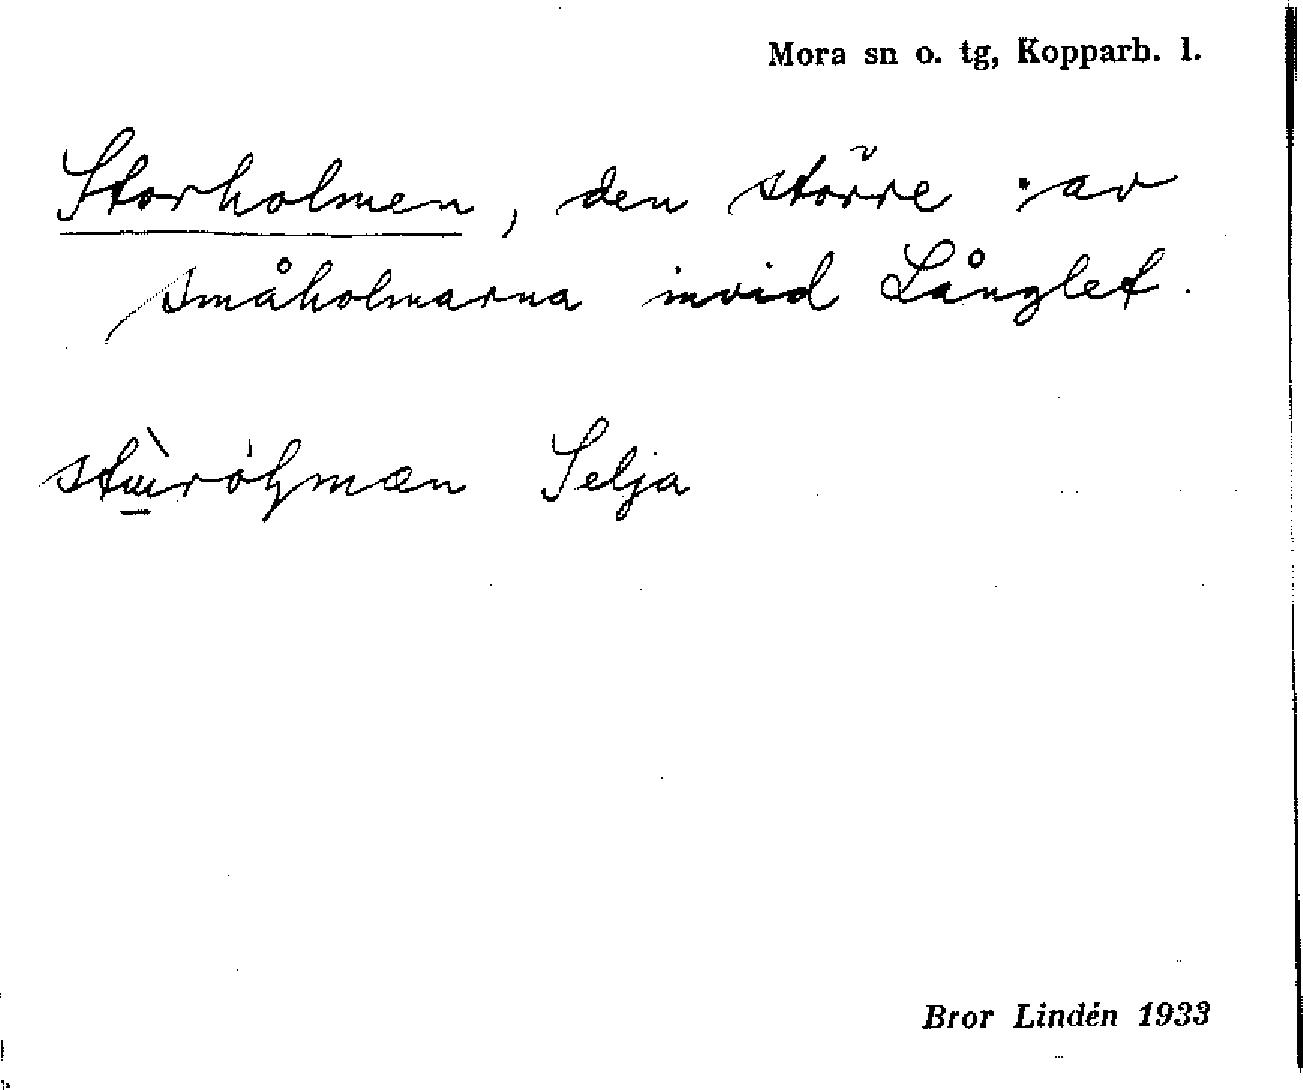 Mora sn o. tg, Kopparb. l.
Storholmen, den större av
småholmarna invid Långlet.
Selja
Bror Lindén 1933